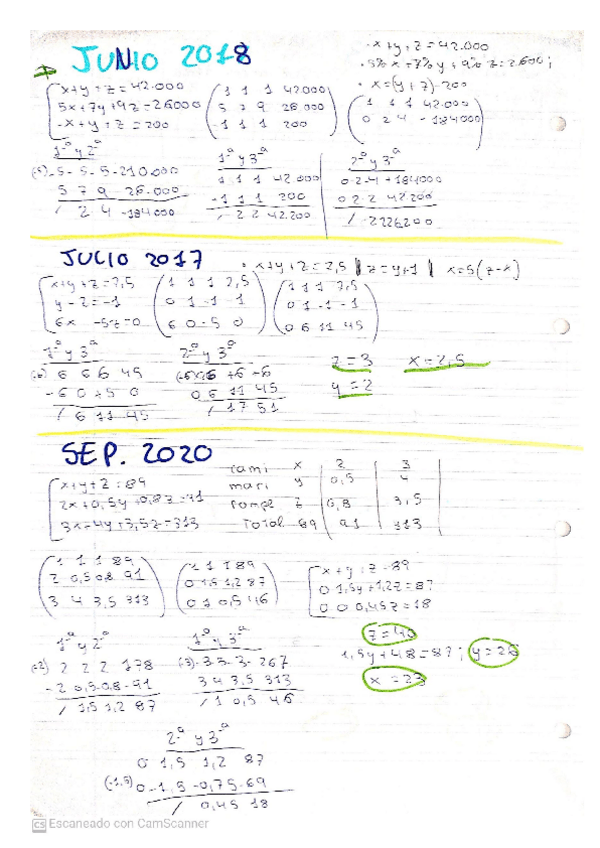 JUNIO 2018
x+y+z=42.000
5%x+7%y+9%z=2.600;
x=(y+z)-200
x+y+z=42.000
5x+7y+9z=26000
-x+y+z=200
1 1 1 42.000
5 7 9 26.000
-1 1 1 200
1 1 1 42.000
0 2 4 -184000
1ª y 2ª
(-5) -5 -5 -5 -210.000
5 7 9 26.000
/ 2 4 -184000
1ª y 3ª
1 1 1 42.000
-1 1 1 200
/ 2 2 42.200
2ª y 3ª
0 -2 -4 +184000
0 2 2 42.200
/ -2 226200
JULIO 2017
x+y+z=7,5 | z=y+1 | x=5(z-x)
x+y+z=7,5
y-z=-1
6x -5z=0
1 1 1 7,5
0 1 -1 -1
6 0 -5 0
1 1 1 7,5
0 1 -1 -1
0 6 11 45
1ª y 3ª
(6) 6 6 6 45
-6 0 +5 0
/ 6 11 45
2ª y 3ª
0 6 11 45
/ 17 51
z=3 x=2,5
y=2
SEP. 2020
x+y+z=89
2x+0,5y+0,8z=91
3x=4y+3,5z=313
cami x 2 3
mari y 0,5 4
rompe z 0,8 3,5
Total 89 91 313
1 1 1 89
2 0,5 0,8 91
3 4 3,5 313
1 1 1 89
0 1,5 1,2 87
0 1 0,5 46
x+y+z=89
0 1,5y+1,2z=87
0 0 0,45z=18
z=40
1,5y+48=87; y=26
x=23
1ª y 2ª
(2) 2 2 2 178
-2 0,5 -0,8 -91
/ 1,5 1,2 87
1ª y 3ª
(-3) -3 -3 -3 -267
3 4 3,5 313
/ 1 0,5 46
2ª y 3ª
0 1,5 1,2 87
(-1,5) 0 -1,5 -0,75 -69
/ 0,45 18
CS Escaneado con CamScanner